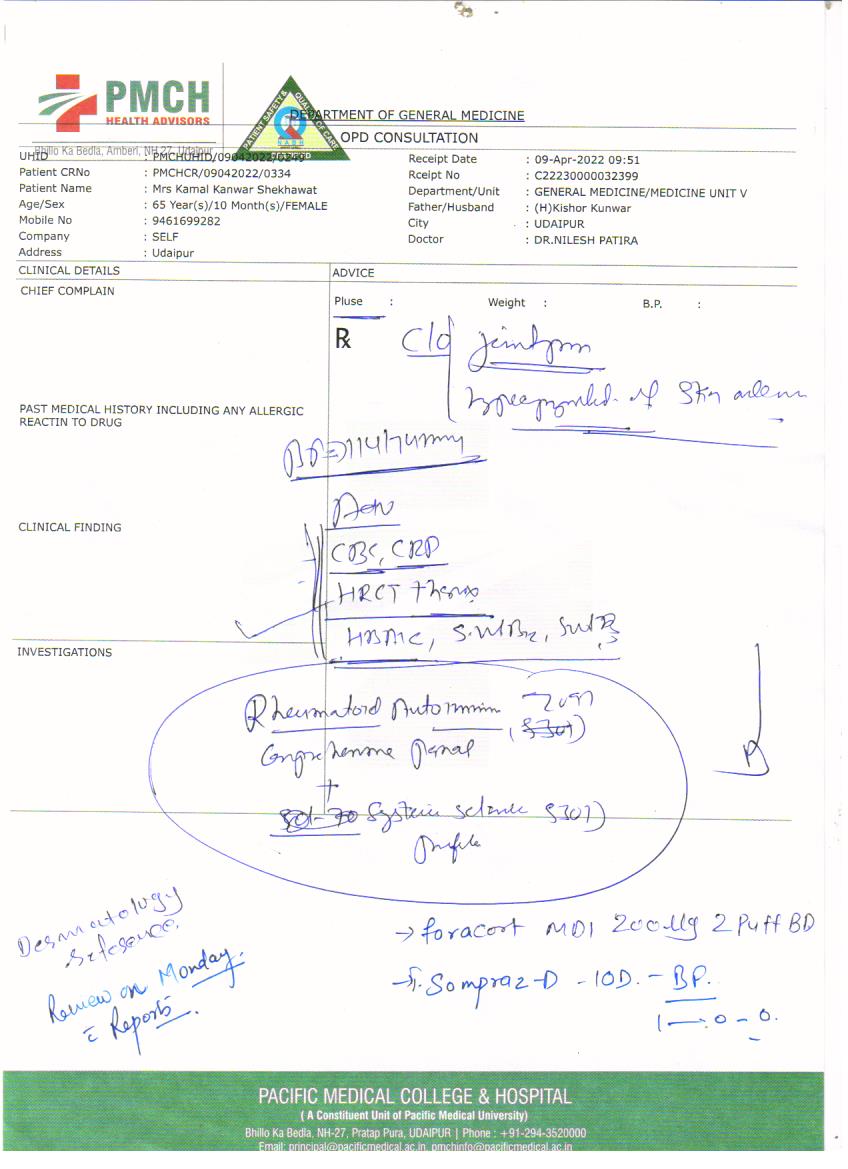 PMCH
HEALTH ADVISORS
PATIENT SAFETY & QUALITY OF CARE
NABH
DEPARTMENT OF GENERAL MEDICINE
OPD CONSULTATION
Bhillo Ka Bedla, Amberi, NH-27, Udaipur
UHID : PMCHUHID/09042022/0249
Patient CRNo : PMCHCR/09042022/0334
Patient Name : Mrs Kamal Kanwar Shekhawat
Age/Sex : 65 Year(s)/10 Month(s)/FEMALE
Mobile No : 9461699282
Company : SELF
Address : Udaipur
Receipt Date : 09-Apr-2022 09:51
Rceipt No : C22230000032399
Department/Unit : GENERAL MEDICINE/MEDICINE UNIT V
Father/Husband : (H)Kishor Kunwar
City : UDAIPUR
Doctor : DR.NILESH PATIRA
CLINICAL DETAILS
ADVICE
CHIEF COMPLAIN
Pluse : Weight : B.P. :
Rx C/o
of Skin
PAST MEDICAL HISTORY INCLUDING ANY ALLERGIC
REACTIN TO DRUG
BP=114/74mmHg
Adv
CLINICAL FINDING
CBC, CRP
HRCT thorax
HBA1C, S.Vit B12, S.Vit D3
INVESTIGATIONS
Rheumatoid Autoimmune
Comprehensive Panal
+
Systemic
profile
Dermatology
reference.
Review on Monday.
c̄ Reports.
→ foracort MDI 200 Mg 2 Puff BD
→ T. Sompraz-D - 1OD. - BF.
1 — 0 - 0.
PACIFIC MEDICAL COLLEGE & HOSPITAL
( A Constituent Unit of Pacific Medical University)
Bhillo Ka Bedla, NH-27, Pratap Pura, UDAIPUR | Phone : +91-294-3520000
Email: principal@pacificmedical.ac.in, pmchinfo@pacificmedical.ac.in